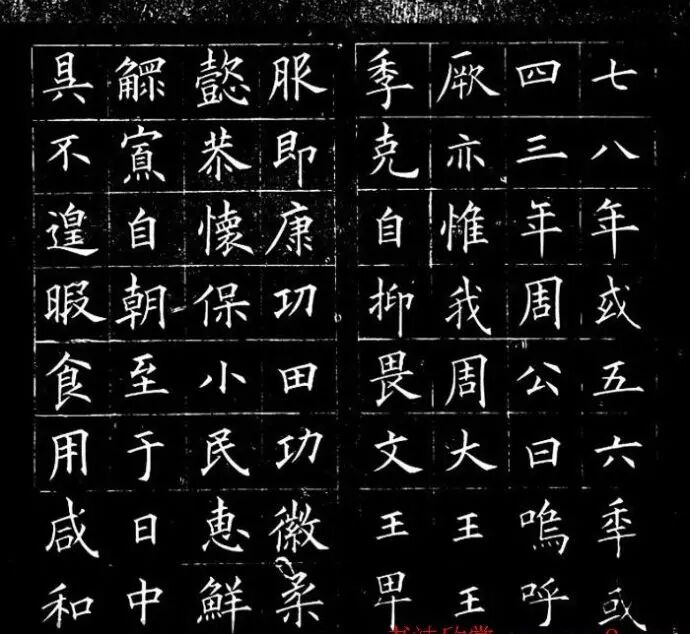 七八年或五六年或
四三年周公曰嗚呼
厥亦惟我周大王王
季克自抑畏文王卑
服即康功田功徽柔
懿恭懷保小民惠鮮
鰥寡自朝至于日中
昃不遑暇食用咸和